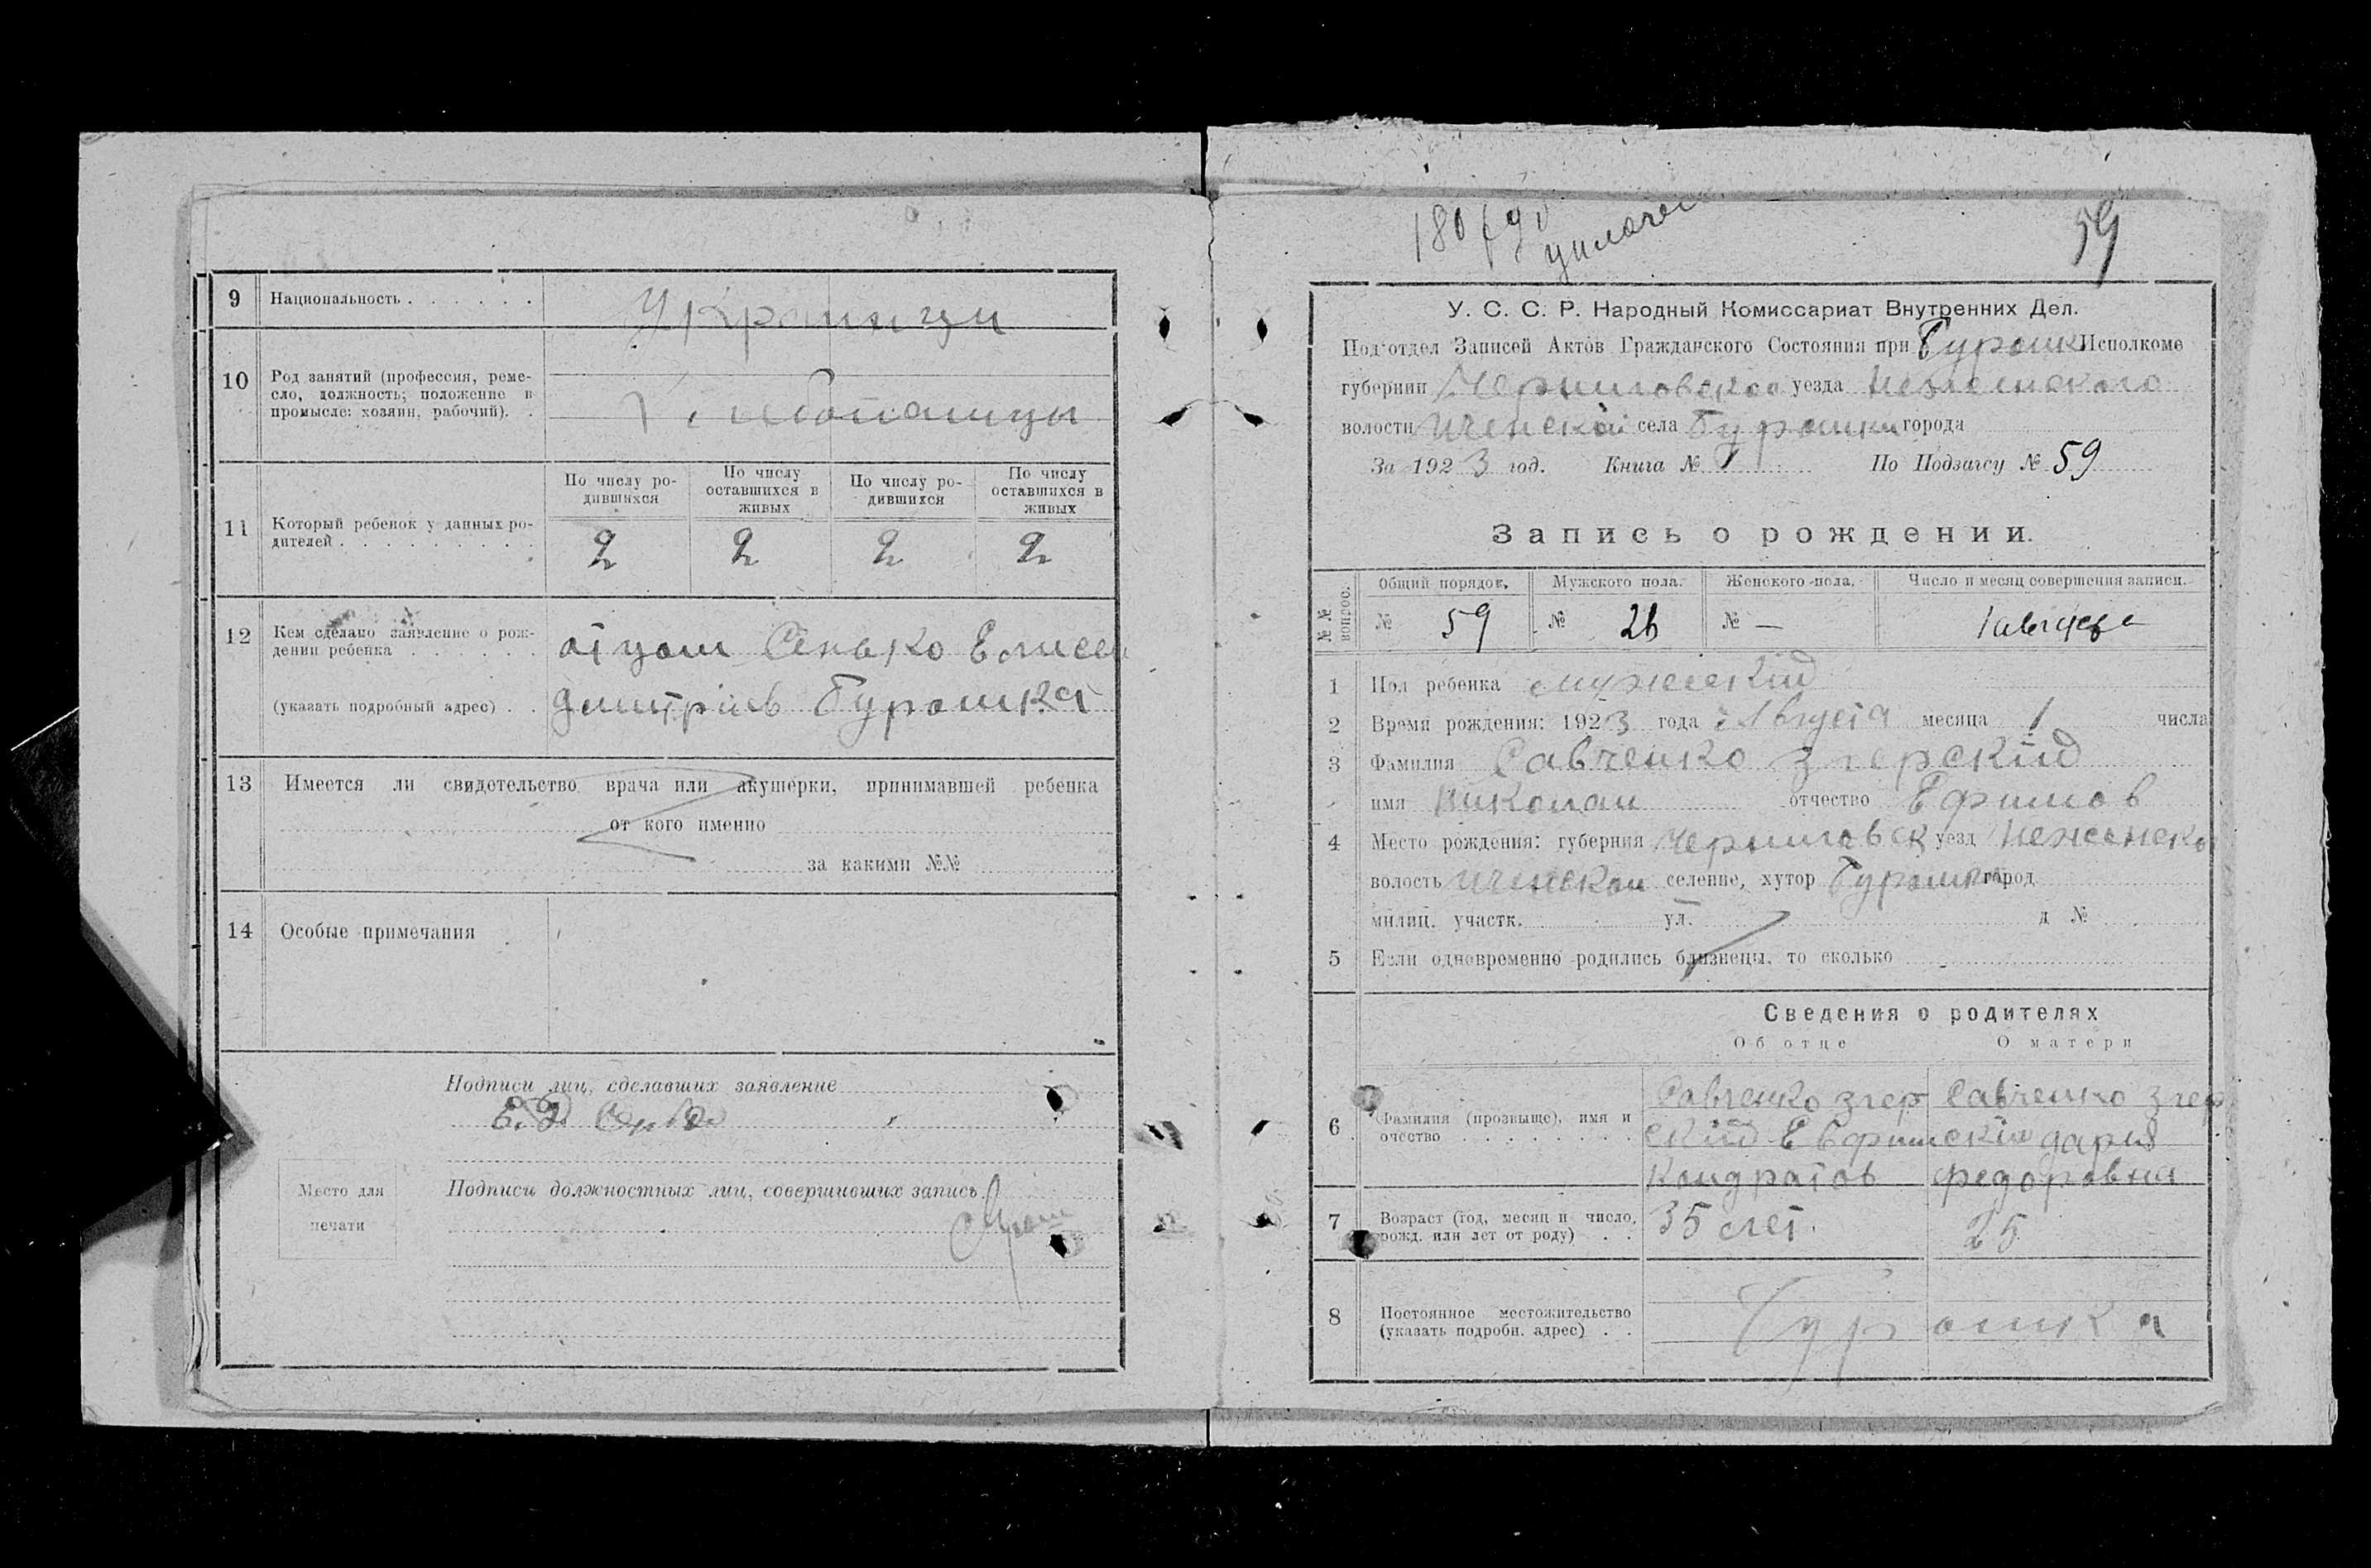 9 Национальность . . . . . . Украинци
10 Род занятий (профессия, реме-
сло, должность; положение в
промысле: хозяин, рабочий). .
Хлебопашцы
11 Который ребенок у данных ро-
дителей . . . . . . . . . .
По числу ро-
дившихся
По числу
оставшихся в
живых
По числу ро-
дившихся
По числу
оставшихся в
живых
2 2 2 2
12 Кем сделано заявление о рож-
дении ребенка . . . . . . отцом Сенько Елисей
(указать подробный адрес) . . Дмитріев Бурошка
13 Имеется ли свидетельство врача или акушерки, принимавшей ребенка
от кого именно
за какими №№
14 Особые примечания
Подписи лиц, сделавших заявление
Е. Д.
Место для
печати
Подписи должностных лиц, совершивших запись
180
59
У. С. С. Р. Народный Комиссариат Внутренних Дел.
Подотдел Записей Актов Гражданского Состояния при Бурошк Исполкоме
губернии Черниговской уезда Неженского
волости Иченской села Бурошки города
За 1923 год. Книга № 1 По Подзагсу № 59
Запись о рождении.
№№ вопрос.
Общий порядок. Мужского пола. Женского пола. Число и месяц совершения записи.
№ 59 № 26 № — 1 августа
1 Пол ребенка мужескій
2 Время рождения: 1923 года Августа месяца 1 числа
3 Фамилия Савченко згерскій
имя Николай отчество Ефимов
4 Место рождения: губерния Черниговск уезд Неженско
волость Иченской селение, хутор Бурошка город
милиц. участк. ул. д №
5 Если одновременно родились близнецы, то сколько
Сведения о родителях
Об отце О матери
6 Фамилия (прозвыще), имя и
очество . . . . . . . .
Савченко згер
скій Ефим
Кондратов
Савченко згер
скія дарія
федоровна
7 Возраст (год, месяц и число,
рожд. или лет от роду) . .
35 лет. 25
8 Постоянное местожительство
(указать подробн. адрес) . .
Бурошка